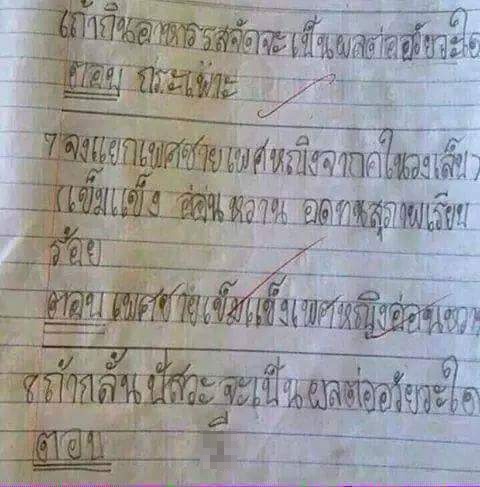 ถ้ากินอาหารรสจัดจะเป็นผลต่ออวัยวะใด
ตอบ กระเพาะ
7 จงแยกเพศชายเพศหญิงจากคำในวงเล็บ
(เข้มแข็ง อ่อนหวาน อดทนสุภาพเรียบ
ร้อย
ตอบ เพศชายเข้มแข็งเพศหญิงอ่อนหวา
8 ถ้ากลั้นปัสวะจะเป็นผลต่ออวัยวะใด
ตอบ